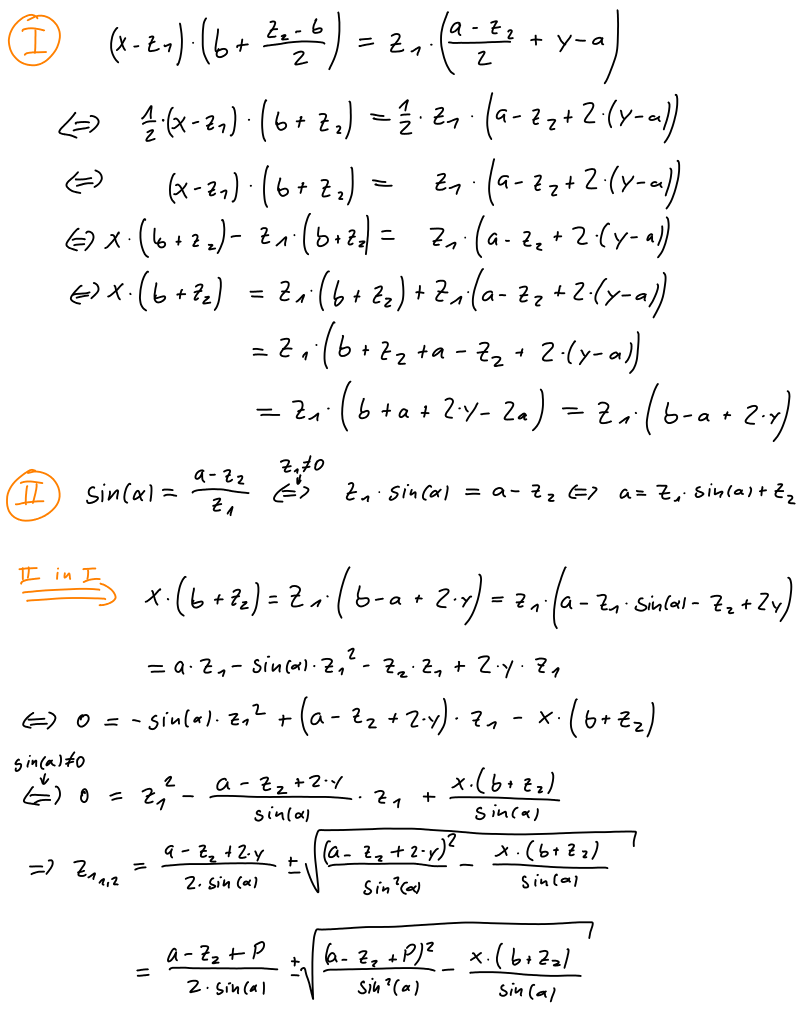 I (x-z₁)·(b + (z₂-b)/2) = z₁·((a-z₂)/2 + y-a)
⇔ 1/2·(x-z₁)·(b+z₂) = 1/2·z₁·(a-z₂+2·(y-a))
⇔ (x-z₁)·(b+z₂) = z₁·(a-z₂+2·(y-a))
⇔ x·(b+z₂) - z₁·(b+z₂) = z₁·(a-z₂+2·(y-a))
⇔ x·(b+z₂) = z₁·(b+z₂) + z₁·(a-z₂+2·(y-a))
= z₁·(b+z₂+a-z₂+2·(y-a))
= z₁·(b+a+2·y-2a) = z₁·(b-a+2·y)
z₁≠0
II sin(α) = (a-z₂)/z₁ ⇔ z₁·sin(α) = a-z₂ ⇔ a = z₁·sin(α)+z₂
II in I
x·(b+z₂) = z₁·(b-a+2·y) = z₁·(a-z₁·sin(α)-z₂+2y)
= a·z₁ - sin(α)·z₁² - z₂·z₁ + 2·y·z₁
⇔ 0 = -sin(α)·z₁² + (a-z₂+2·y)·z₁ - x·(b+z₂)
sin(α)≠0
⇔ 0 = z₁² - (a-z₂+2·y)/sin(α)·z₁ + x·(b+z₂)/sin(α)
⇒ z₁₁,₂ = (a-z₂+2·y)/(2·sin(α)) ± √((a-z₂+2·y)²/sin²(α) - x·(b+z₂)/sin(α))
= (a-z₂+P)/(2·sin(α)) ± √((a-z₂+P)²/sin²(α) - x·(b+z₂)/sin(α))